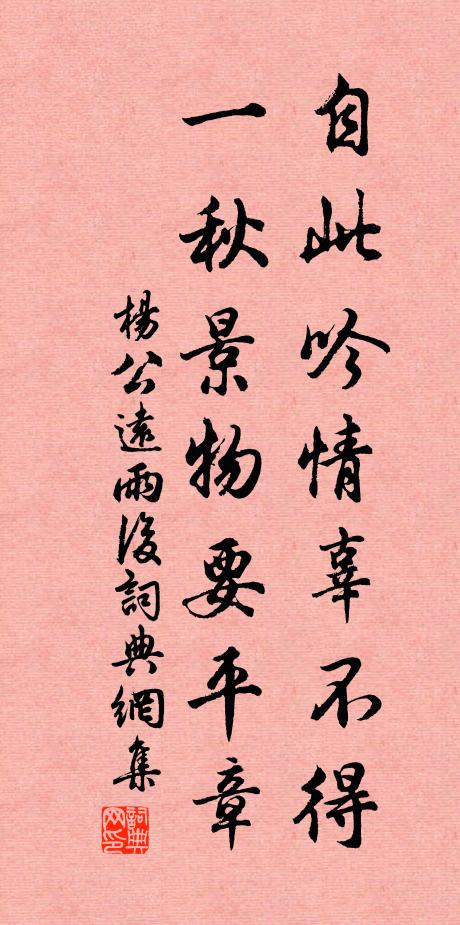 自此吟情辜不得
一秋景物要平章
楊公遠雨後詞典網集
詞典网印